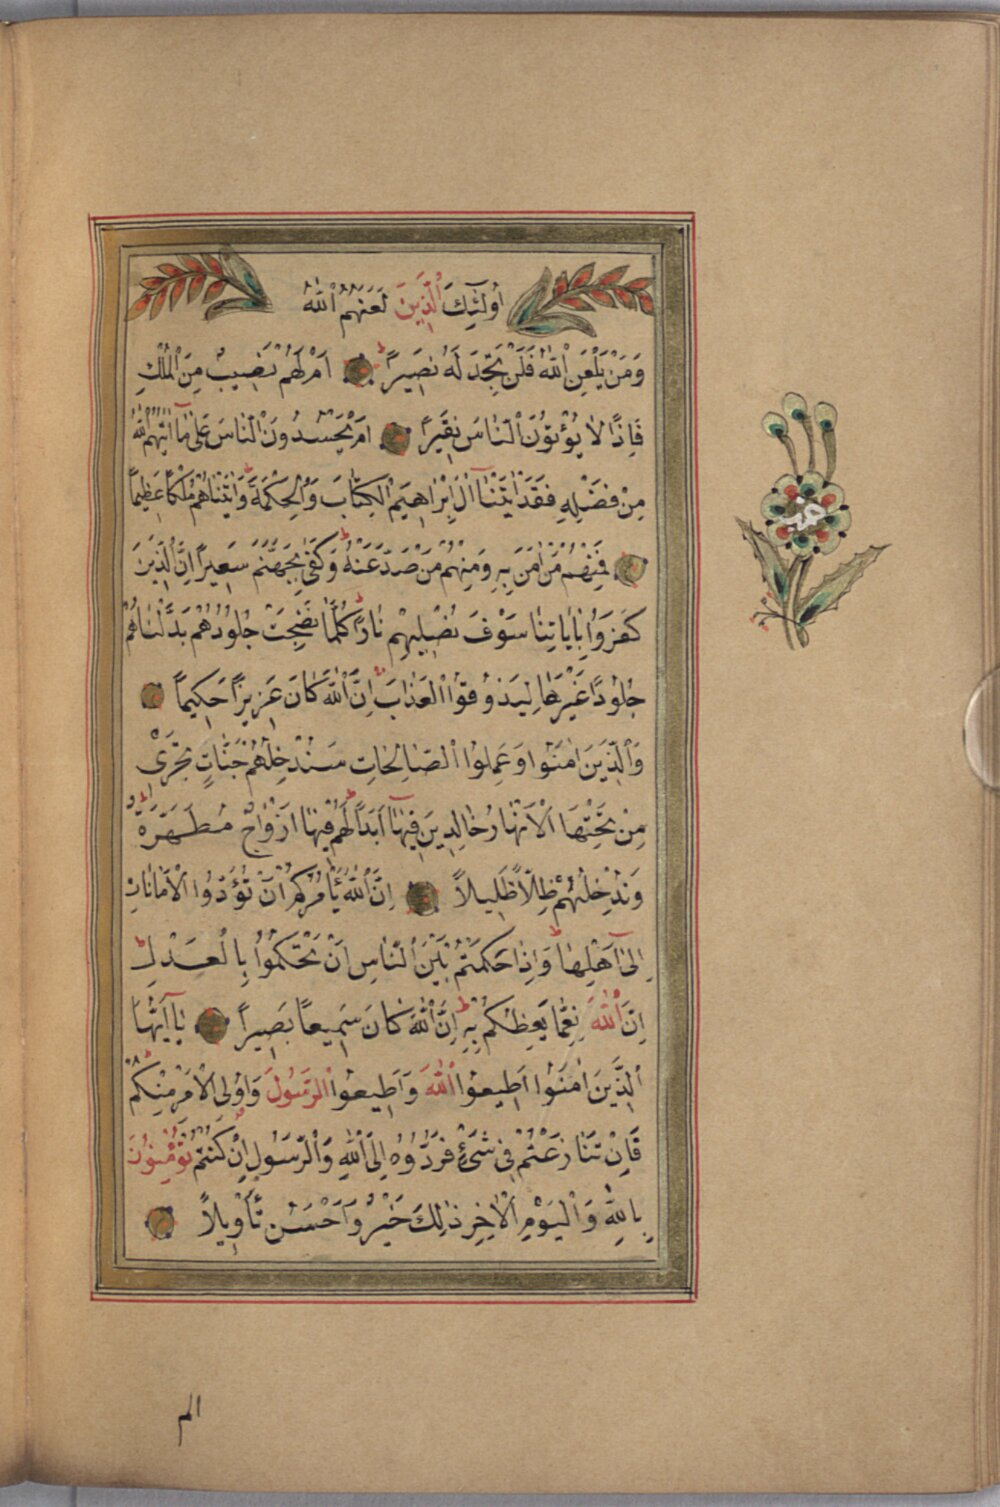 أُولَٰئِكَ الَّذِينَ لَعَنَهُمُ اللّٰهُ
وَمَنْ يَلْعَنِ اللّٰهُ فَلَنْ تَجِدَ لَهُ نَصِيرًا اَمْ لَهُمْ نَصِيبٌ مِنَ الْمُلْكِ
فَاِذًا لَا يُؤْتُونَ النَّاسَ نَقِيرًا اَمْ يَحْسُدُونَ النَّاسَ عَلٰى مَا اٰتٰيهُمُ اللّٰهُ
مِنْ فَضْلِهِ فَقَدْ اٰتَيْنَا اٰلَ اِبْرَاهِيمَ الْكِتَابَ وَالْحِكْمَةَ وَاٰتَيْنَاهُمْ مُلْكًا عَظِيمًا
فَمِنْهُمْ مَنْ اٰمَنَ بِهِ وَمِنْهُمْ مَنْ صَدَّ عَنْهُ وَكَفٰى بِجَهَنَّمَ سَعِيرًا اِنَّ الَّذِينَ
كَفَرُوا بِاٰيَاتِنَا سَوْفَ نُصْلِيهِمْ نَارًا كُلَّمَا نَضِجَتْ جُلُودُهُمْ بَدَّلْنَاهُمْ
جُلُودًا غَيْرَهَا لِيَذُوقُوا الْعَذَابَ اِنَّ اللّٰهَ كَانَ عَزِيزًا حَكِيمًا
وَالَّذِينَ اٰمَنُوا وَعَمِلُوا الصَّالِحَاتِ سَنُدْخِلُهُمْ جَنَّاتٍ تَجْرِى
مِنْ تَحْتِهَا الْاَنْهَارُ خَالِدِينَ فِيهَا اَبَدًا لَهُمْ فِيهَا اَزْوَاجٌ مُطَهَّرَةٌ
وَنُدْخِلُهُمْ ظِلًّا ظَلِيلًا اِنَّ اللّٰهَ يَأْمُرُكُمْ اَنْ تُؤَدُّوا الْاَمَانَاتِ
اِلٰى اَهْلِهَا وَاِذَا حَكَمْتُمْ بَيْنَ النَّاسِ اَنْ تَحْكُمُوا بِالْعَدْلِ
اِنَّ اللّٰهَ نِعِمَّا يَعِظُكُمْ بِهِ اِنَّ اللّٰهَ كَانَ سَمِيعًا بَصِيرًا يَا اَيُّهَا
الَّذِينَ اٰمَنُوا اَطِيعُوا اللّٰهَ وَاَطِيعُوا الرَّسُولَ وَاُولِى الْاَمْرِ مِنْكُمْ
فَاِنْ تَنَازَعْتُمْ فِى شَىْءٍ فَرُدُّوهُ اِلَى اللّٰهِ وَالرَّسُولِ اِنْ كُنْتُمْ تُؤْمِنُونَ
بِاللّٰهِ وَالْيَوْمِ الْاٰخِرِ ذٰلِكَ خَيْرٌ وَاَحْسَنُ تَأْوِيلًا
الم